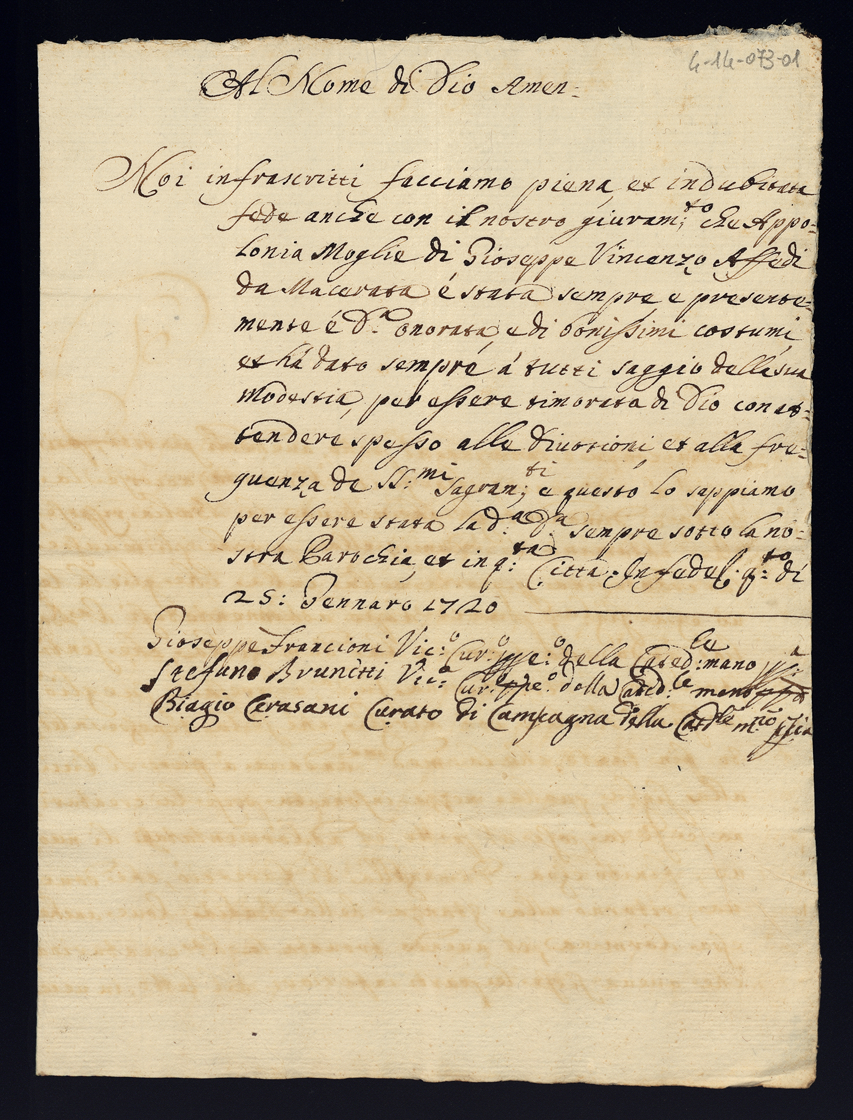 4-14-073-01
Al Nome di Dio Amen:
Noi infrascritti facciamo piena, et indubitata
fede anche con il nostro giuram:to che Appo=
lonia Moglie di Gioseppe Vincenzo Affedi
da Macerata é stata sempre e presente=
mente é D.a onorata, e di bonissimi costumi,
et há dato sempre á tutti saggio della sua
modestia, per essere timorata di Dio con at=
tendere spesso alle divotioni et alla fre=
quenza de SS:mi Sagram:ti e questo lo sappiamo
per essere stata la d.a D.a sempre sotto la no=
stra Parochia, et in q:ta Città. In fede q:to di
25: Gennaro 1720
Gioseppe Francioni Vic:o Cur:o della Cated:le mano
Stefano Brunetti Vic:o Cur:o della Cated:le mano
Biagio Cerasani Curato di Campagna della Cat.le m:no